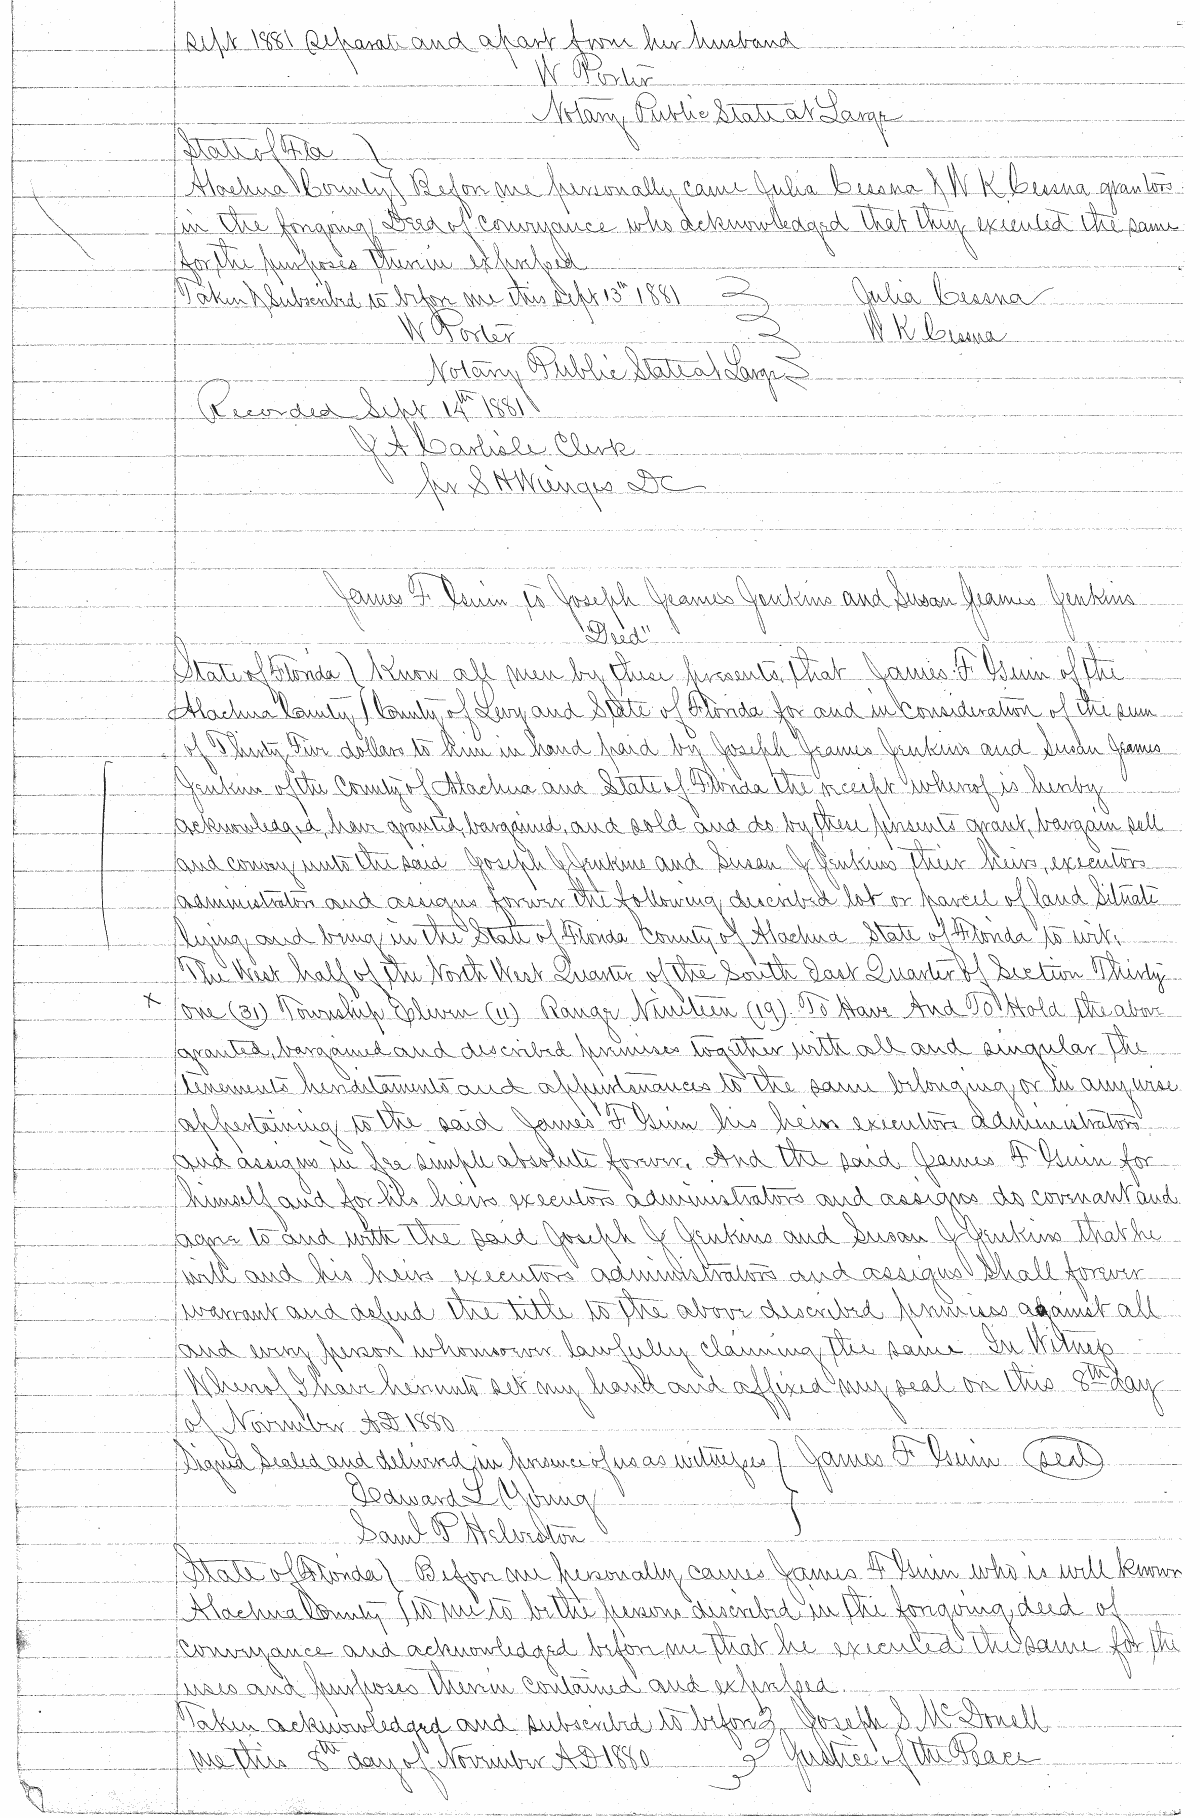 Sept 1881 Separate and apart from her husband
W Porter
Notary Public State at Large
State of Fla }
Alachua County } Before me personally came Julia Cessna & W K Cessna grantors
in the forgoing Deed of conveyance who acknowledged that they executed the same
for the purposes therein expressed
Taken & Subscribed to before me this Sept 13th 1881 } Julia Cessna
W Porter } W K Cessna
Notary Public State at Large }
Recorded Sept 14th 1881
J A Carlisle Clerk
per S H Wienges DC
James F Guin to Joseph Jeames Jenkins and Susan Jeames Jenkins
"Deed"
State of Florida } Know all men by these presents, that James F Guin of the
Alachua County } County of Levy and State of Florida for and in consideration of the sum
of Thirty Five dollars to him in hand paid by Joseph Jeames Jenkins and Susan Jeames
Jenkins of the County of Alachua and State of Florida the receipt whereof is hereby
acknowledged, have granted, bargained, and sold and do by these presents grant, bargain sell
and convey unto the said Joseph J Jenkins and Susan J Jenkins their heirs, executors
administrators and assigns forever the following described lot or parcel of land Situate
lying and being in the State of Florida County of Alachua State of Florida to wit,
The West half of the North West Quarter of the South East Quarter of Section Thirty
x one (31) Township Eleven (11) Range Nineteen (19). To Have And To Hold the above
granted, bargained and described premises together with all and singular the
tenements hereditaments and appurtenances to the same belonging or in any wise
appertaining to the said James F Guin his heirs executors administrators
and assigns in fee simple absolute forever. And the said Jeames F Guin for
himself and for his heirs executors administrators and assigns do covenant and
agree to and with the said Joseph J Jenkins and Susan J Jenkins that he
will and his heirs executors administrators and assigns Shall forever
warrant and defend the title to the above described premises against all
and every person whomsoever lawfully claiming the same In Witness
Whereof I have hereunto set my hand and affixed my seal on this 8th day
of November AD 1880
Signed Sealed and delivered in presence of us as witnesses } James F Guin (seal)
Edward L Young }
Saml P Helveston
State of Florida } Before me personally cames James F Guin who is well known
Alachua County } to me to be the person described in the forgoing deed of
conveyance and acknowledged before me that he executed the same for the
uses and purposes therein contained and expressed.
Taken acknowledged and subscribed to before } Joseph S McDonell
me this 8th day of November AD 1880 } Justice of the Peace